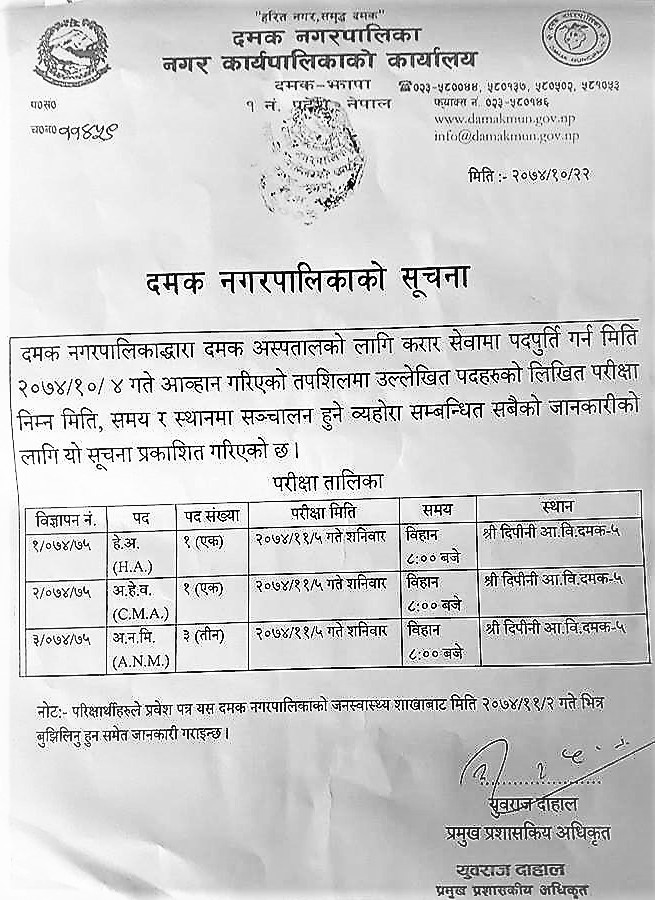 "हरित नगर,समृद्ध दमक"
दमक नगरपालिका
नगर कार्यपालिकाको कार्यालय
दमक-झापा ☎०२३-५८००४४, ५८०१३०, ५८०५०२, ५८१०५३
१ नं. प्रदेश, नेपाल फ्याक्स नं. ०२३-५८०१४६
प०स० www.damakmun.gov.np
च०न० ११४५९ info@damakmun.gov.np
मिति :- २०७४/१०/२२
दमक नगरपालिकाको सूचना
दमक नगरपालिकाद्धारा दमक अस्पतालको लागि करार सेवामा पदपुर्ति गर्न मिति
२०७४/१०/ ४ गते आव्हान गरिएको तपशिलमा उल्लेखित पदहरुको लिखित परीक्षा
निम्न मिति, समय र स्थानमा सञ्चालन हुने व्यहोरा सम्बन्धित सबैको जानकारीको
लागि यो सूचना प्रकाशित गरिएको छ ।
परीक्षा तालिका
विज्ञापन नं. पद पद संख्या परीक्षा मिति समय स्थान
१/०७४/७५ हे.अ. (H.A.) १ (एक) २०७४/११/५ गते शनिवार विहान ८:०० बजे श्री दिपीनी आ.वि.दमक-५
२/०७४/७५ अ.हे.व. (C.M.A.) १ (एक) २०७४/११/५ गते शनिवार विहान ८:०० बजे श्री दिपीनी आ.वि.दमक-५
३/०७४/७५ अ.न.मि. (A.N.M.) ३ (तीन) २०७४/११/५ गते शनिवार विहान ८:०० बजे श्री दिपीनी आ.वि.दमक-५
नोट:- परिक्षार्थीहरुले प्रवेश पत्र यस दमक नगरपालिकाको जनस्वास्थ्य शाखाबाट मिति २०७४/११/२ गते भित्र
बुझिलिनु हुन समेत जानकारी गराइन्छ ।
युवराज दाहाल
प्रमुख प्रशासकिय अधिकृत
युवराज दाहाल
प्रमुख प्रशासकीय अधिकृत